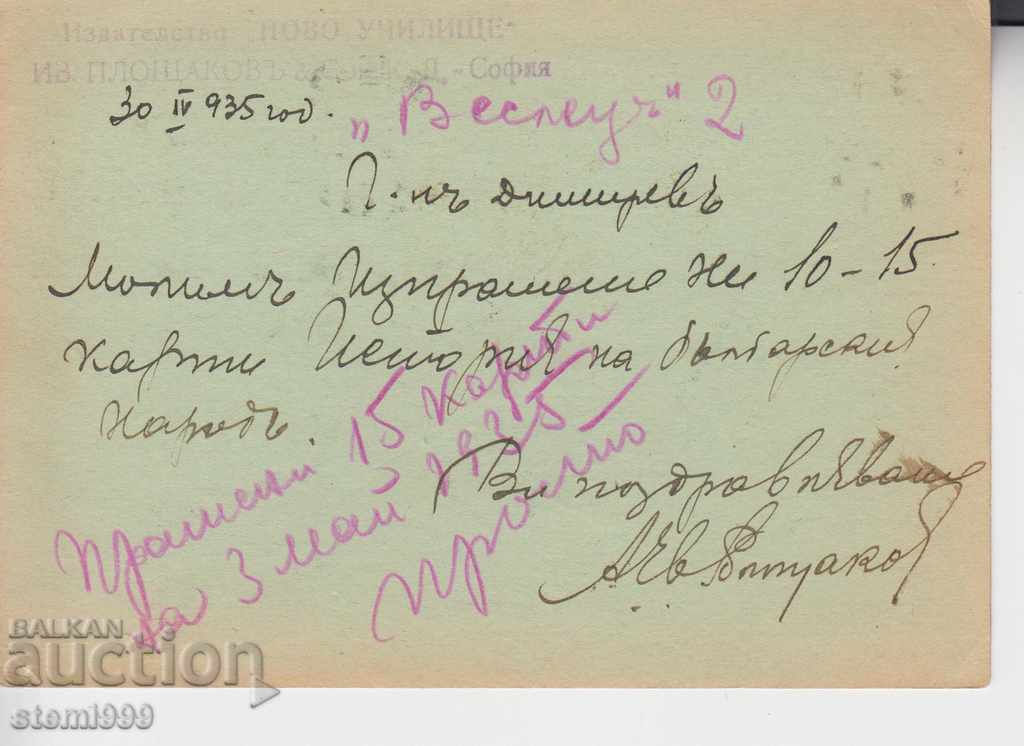 Издателство "НОВО УЧИЛИЩЕ"
ИВ. ПЛОЩАКОВЪ - София
30 IV 935 год.
„Веслецъ" 2
Г-нъ Димитревъ
Молимъ Изпратете ни 10-15
карти История на българския
народъ.
Ви поздравляваме
Пратени 15 карти
на 3 май 1935
BALKAN
auction
stemi999